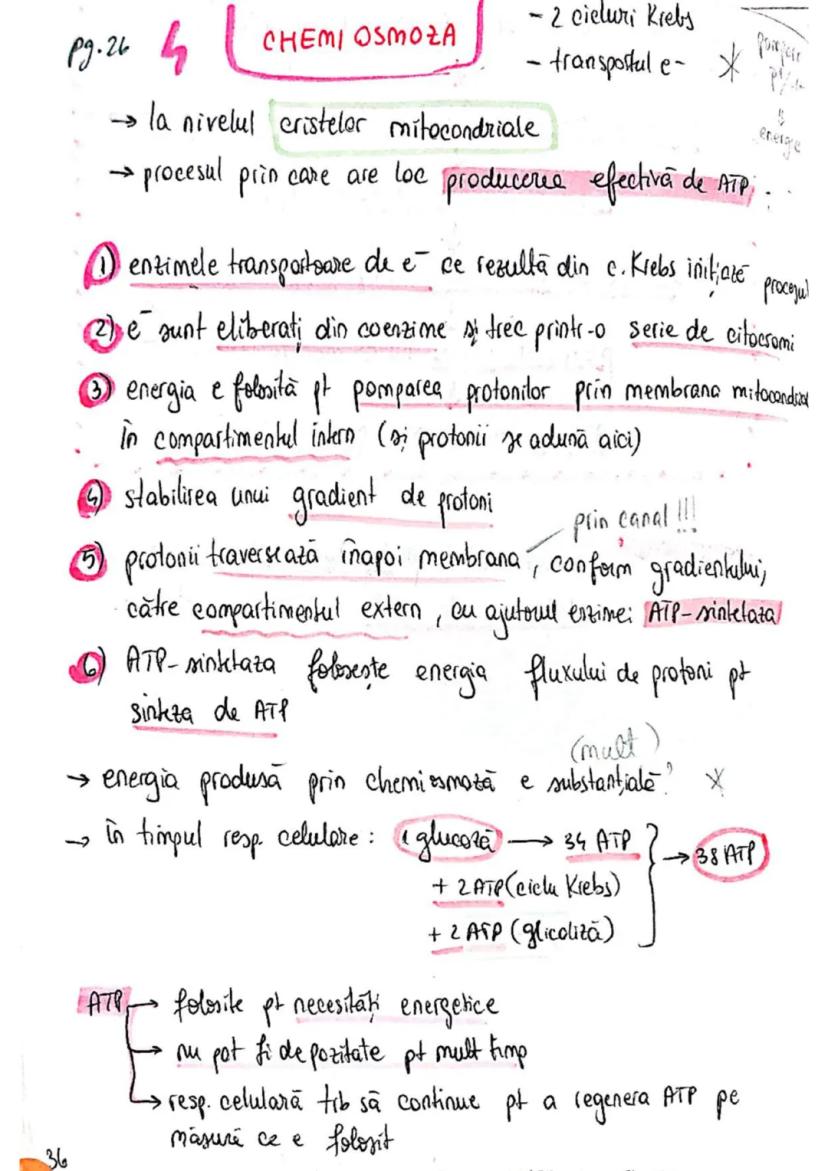 pg. 26 4 CHEMIOSMOZA
- 2 cicluri Krebs
- transportul e- *
pompare
pt
energie
→ la nivelul cristelor mitocondriale
→ procesul prin care are loc producerea efectivă de ATP.
1) enzimele transportoare de e⁻ ce rezultă din c. Krebs inițiază procesul
2) e⁻ sunt eliberați din coenzime și trec printr-o serie de citocromi
3) energia e folosită pt pomparea protonilor prin membrana mitocondrială
în compartimentul intern (și protonii se adună aici)
4) stabilirea unui gradient de protoni
prin canal !!!
5) protonii traversează înapoi membrana, conform gradientului,
către compartimentul extern, cu ajutorul enzimei ATP-sintetaza
6) ATP-sintetaza folosește energia fluxului de protoni pt
sinteza de ATP
(mult)
→ energia produsă prin chemiosmoză e substanțială *
→ în timpul resp. celulare: 1 glucoză → 34 ATP → 38 ATP
+ 2 ATP (ciclu Krebs)
+ 2 ATP (glicoliză)
ATP → folosite pt necesități energetice
→ nu pot fi depozitate pt mult timp
→ resp. celulară trb să continue pt a regenera ATP pe
măsură ce e folosit
36